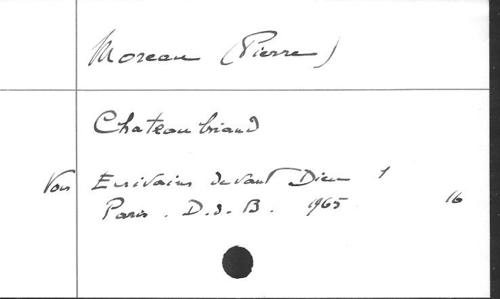 Moreau (Pierre)
Chateaubriand
Voir Ecrivains devant Dieu 1
Paris. D.d.B. 1965 16